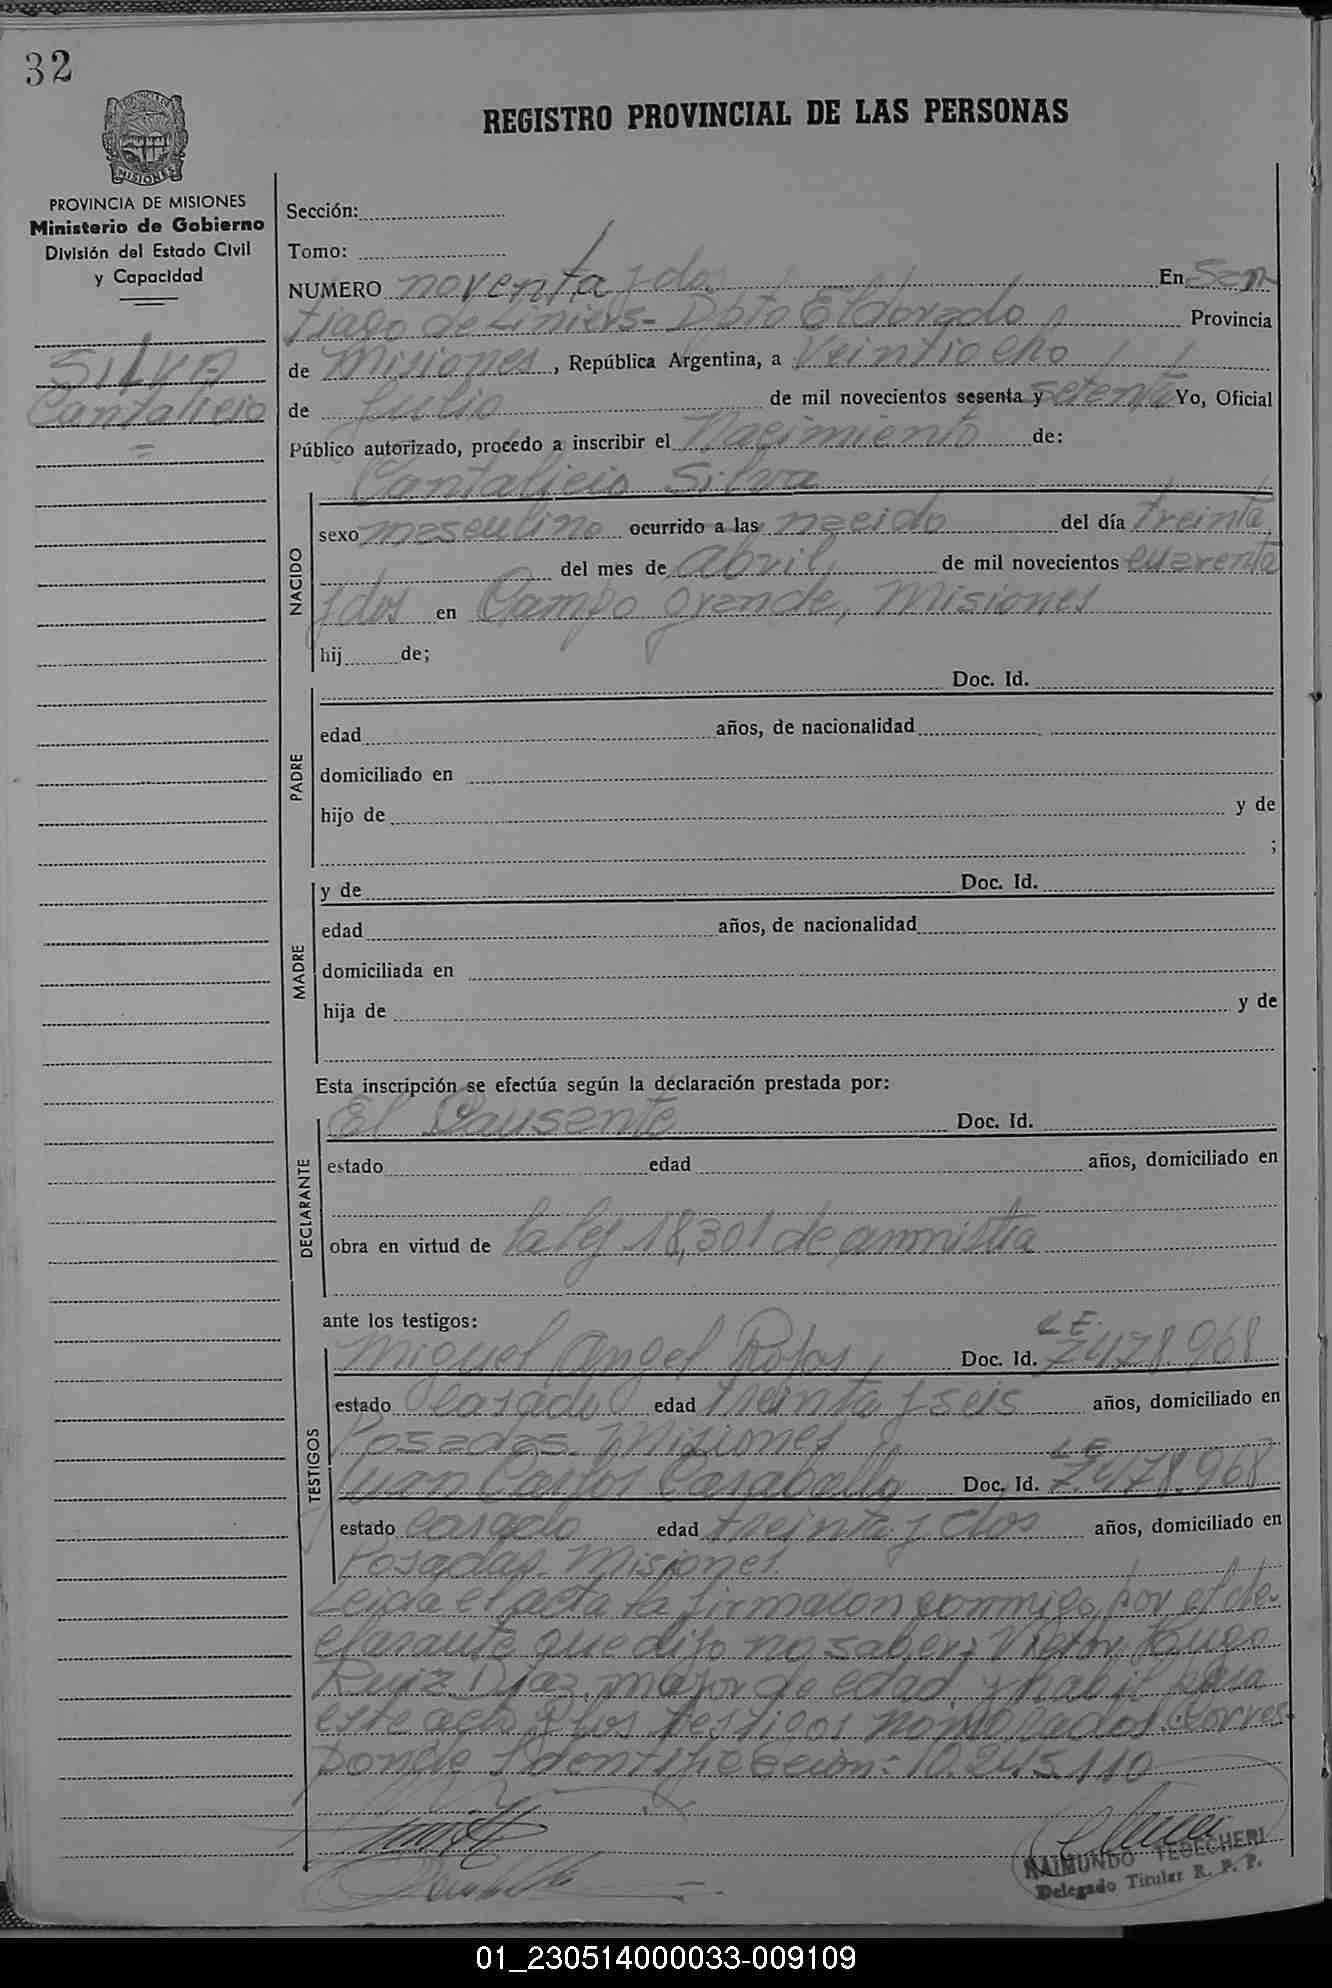 32
REGISTRO PROVINCIAL DE LAS PERSONAS
MISIONES
PROVINCIA DE MISIONES
Ministerio de Gobierno
División del Estado Civil
y Capacidad
SILVA
Cantalicio
=
Sección:
Tomo:
NUMERO noventa y dos En San
tiago de Liniers - Dpto Eldorado Provincia
de Misiones, República Argentina, a Veintiocho
de Julio de mil novecientos sesenta y setenta Yo, Oficial
Público autorizado, procedo a inscribir el Nacimiento de:
Cantalicio Silva
NACIDO
sexo masculino ocurrido a las nacido del día treinta
del mes de abril de mil novecientos cuarenta
y dos en Campo Grande, Misiones
hij de;
Doc. Id.
PADRE
edad años, de nacionalidad
domiciliado en
hijo de y de
;
MADRE
y de Doc. Id.
edad años, de nacionalidad
domiciliada en
hija de y de
Esta inscripción se efectúa según la declaración prestada por:
DECLARANTE
El Causante Doc. Id.
estado edad años, domiciliado en
obra en virtud de la ley 18,301 de amnistia
ante los testigos:
TESTIGOS
L.E.
Miguel Angel Rojas, Doc. Id. 7.478.968
estado casado edad treinta y seis años, domiciliado en
Posadas. Misiones
L.E.
Juan Carlos Caraballo Doc. Id. 7.478.968
estado casado edad treinta y dos años, domiciliado en
Posadas. Misiones.
Leida el acta la firmaron conmigo, por el de-
clarante que dijo no saber: Victor Hugo
Ruiz Diaz, mayor de edad, y habil para
este acto y los testigos nombrados. Corres-
ponde Identificacion: 10.245.110
RAIMUNDO TEDECHERI
Delegado Titular R. P. P.
01_230514000033-009109